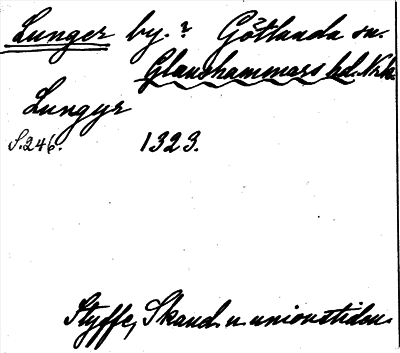 Lunger by.? Götlunda sn.
Glanshammars hd. Nrk.
Lungyr
S. 246. 1323.
Styffe, Skand. u. unionstiden.